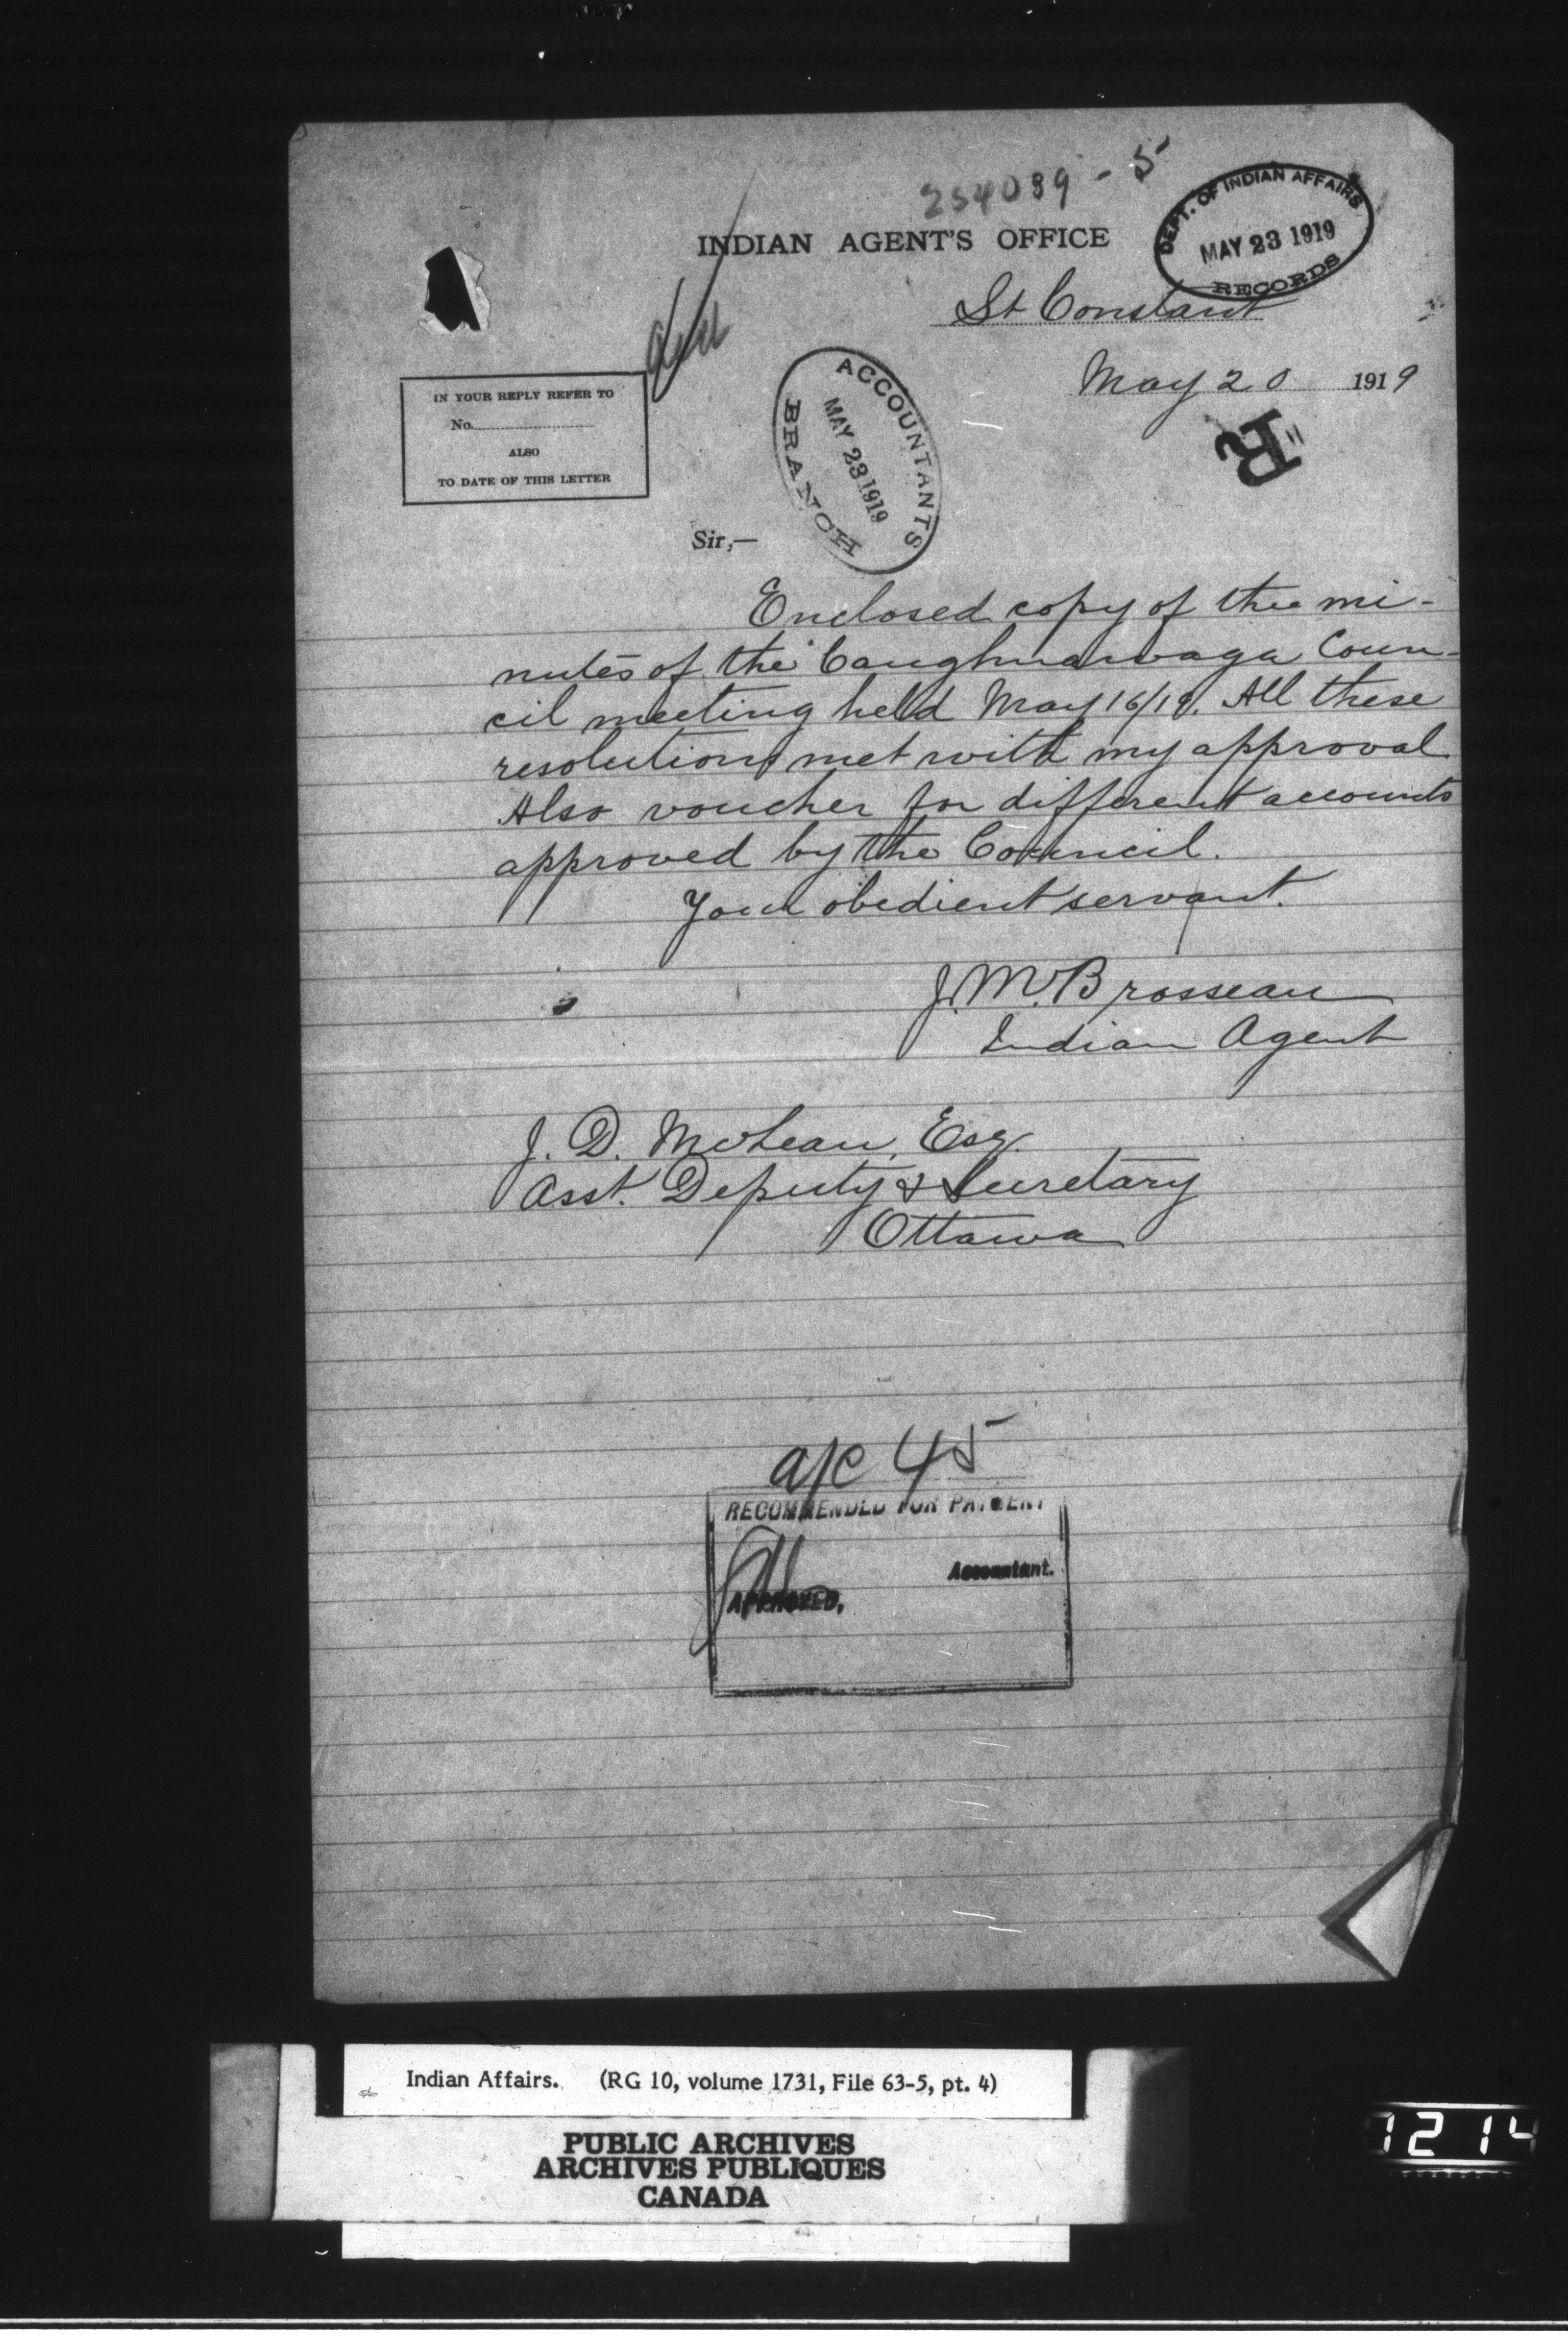 254089-5
DEPT. OF INDIAN AFFAIRS
MAY 23 1919
RECORDS
INDIAN AGENT'S OFFICE
St Constant
May 20 1919
IN YOUR REPLY REFER TO
No.
ALSO
TO DATE OF THIS LETTER
ACCOUNTANTS
MAY 23 1919
BRANCH
Sir,—
Enclosed copy of the mi-
nutes of the Caughnawaga Coun-
cil meeting held May 16/19. All these
resolutions met with my approval
Also voucher for different accounts
approved by the Council.
Your obedient servant.
J. M. Brosseau
Indian Agent
J. D. McLean, Esq.
Asst. Deputy & Secretary
Ottawa
a/c 45
RECOMMENDED FOR PAYMENT
Accountant.
APPROVED,
Indian Affairs. (RG 10, volume 1731, File 63-5, pt. 4)
PUBLIC ARCHIVES
ARCHIVES PUBLIQUES
CANADA
1214